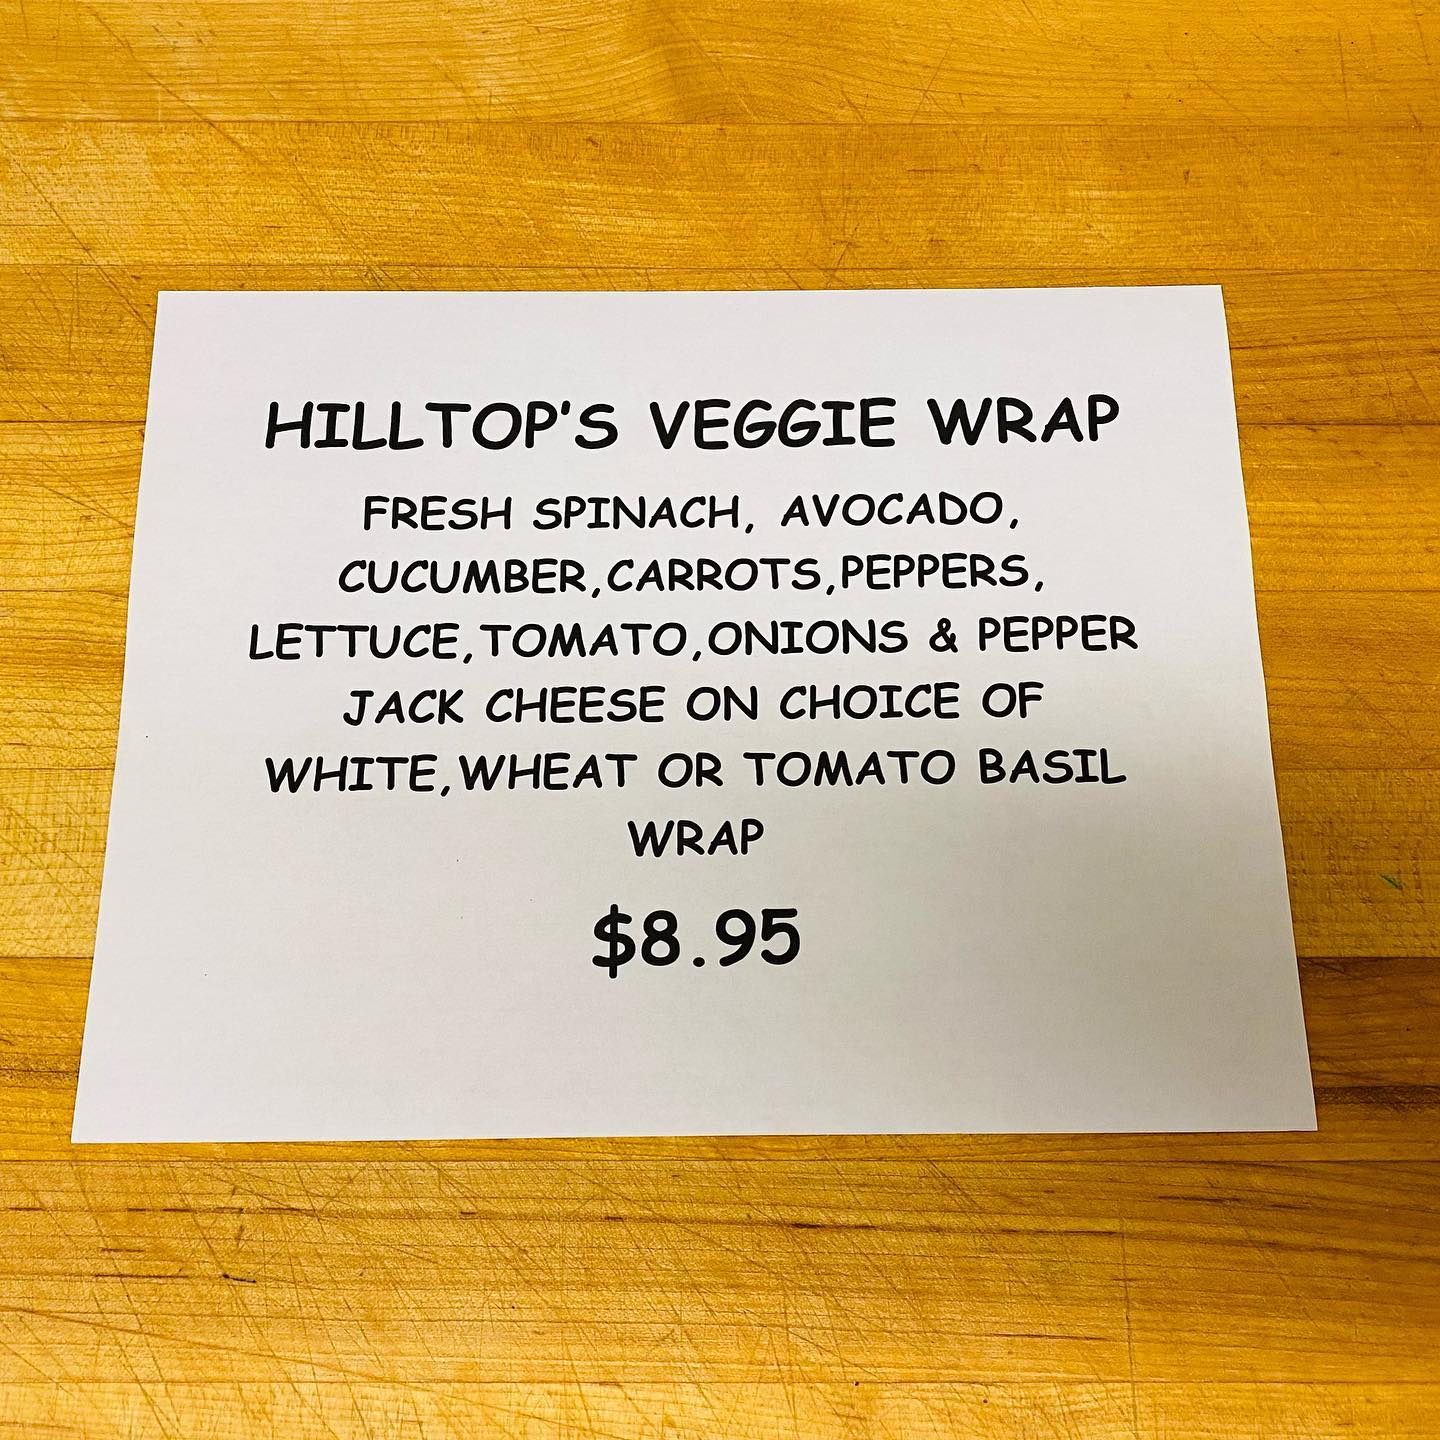 HILLTOP'S VEGGIE WRAP
FRESH SPINACH, AVOCADO,
CUCUMBER,CARROTS,PEPPERS,
LETTUCE,TOMATO,ONIONS & PEPPER
JACK CHEESE ON CHOICE OF
WHITE,WHEAT OR TOMATO BASIL
WRAP
$8.95